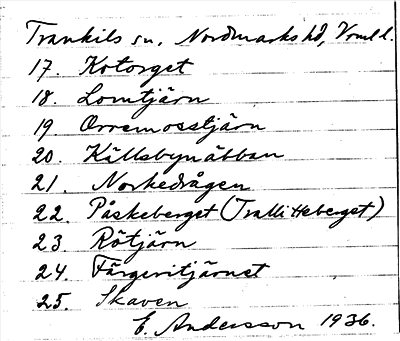 Trankils sn. Nordmarks hd, Vrml l.
17. Kotorget
18. Lomtjärn
19. Orremosstjärn
20. Källsbynäbban
21. Norkedrågen
22. Påskeberget (Trallitteberget)
23 Rötjärn
24. Färgeritjärnet
25. Skaven
E. Andersson 1936.